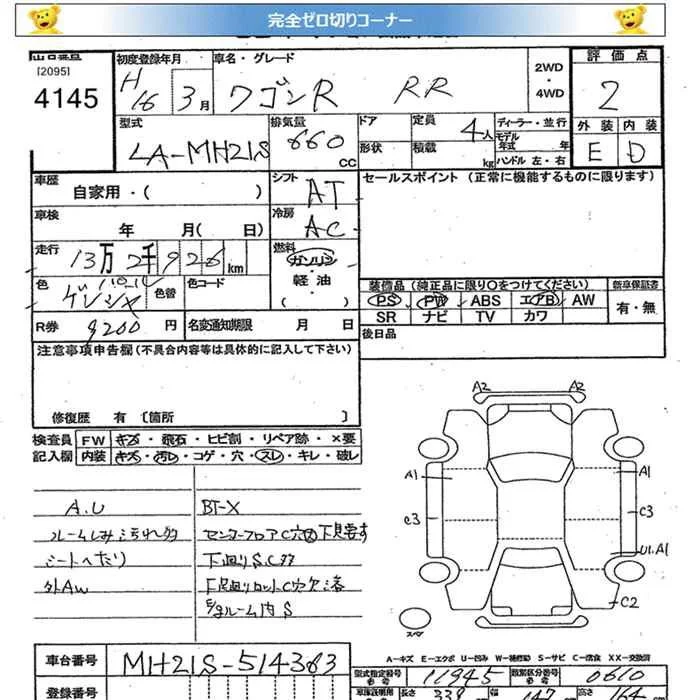 完全ゼロ切りコーナー
[2095]
4145
初度登録年月
H16 3月
車名・グレード
ワゴンR RR
2WD・4WD
評価点
2
型式
LA-MH21S
排気量
660 CC
ドア
形状
定員
4人
積載 kg
ディーラー・並行
モデル年式 年
ハンドル 左・右
外装 内装
E D
車歴
自家用・( )
シフト
AT
セールスポイント (正常に機能するものに限ります)
車検
年 月( 日)
冷房
AC
走行
13万 2千 926 km
燃料
ガソリン
軽油
・( )
色
パール
色替
色コード
装備品 (純正品に限り○をつけてください)
新車保証書
PS PW ABS エアB AW
有・無
SR ナビ TV カワ
R券
9200 円
名変通知期限 月 日
後日品
注意事項申告欄 (不具合内容等は具体的に記入して下さい)
修復歴 有 〔箇所 〕
検査員
記入欄
FW キズ・飛石・ヒビ割・リペア跡・×要
内装 キズ・汚レ・コゲ・穴・スレ・キレ・破レ
A.U
BT-X
シートへたり
外AW
下廻りS.C
A2 A2
A1 A1
C3 C3
U1.A1
C2
スペア
A-キズ E-エクボ U-凹み W-補修跡 S-サビ C-腐食 XX-交換済
車台番号
MH21S-514383
型式指定番号
11945
類別区分番号
0610
登録番号
長さ 338
幅 147
高さ